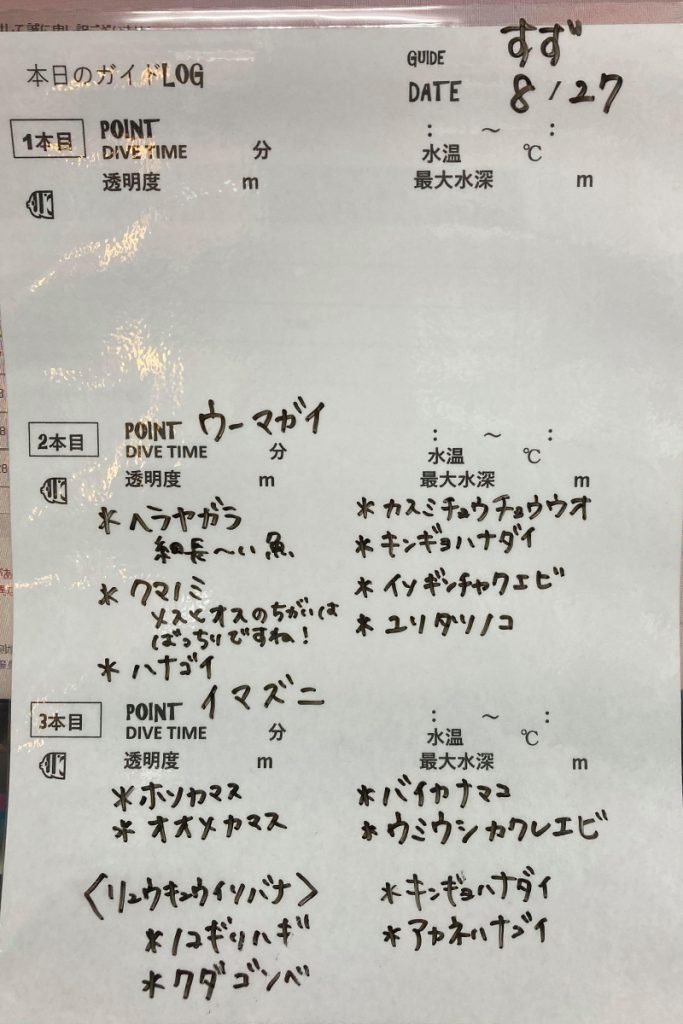 本日のガイドLOG
GUIDE すず
DATE 8/27
1本目 POINT
DIVE TIME 分 : ～ :
水温 ℃
透明度 m 最大水深 m
2本目 POINT ウーマガイ
DIVE TIME 分 : ～ :
水温 ℃
透明度 m 最大水深 m
* ヘラヤガラ
細長〜い魚
* クマノミ
メスとオスのちがいは
ばっちりですね!
* ハナゴイ
* カスミチョウチョウウオ
* キンギョハナダイ
* イソギンチャクエビ
* ユリタツノコ
3本目 POINT イマズニ
DIVE TIME 分 : ～ :
水温 ℃
透明度 m 最大水深 m
* ホソカマス
* オオメカマス
〈リュウキュウイソバナ〉
* ノコギリハギ
* クダゴンベ
* バイカナマコ
* ウミウシカクレエビ
* キンギョハナダイ
* アカネハナゴイ